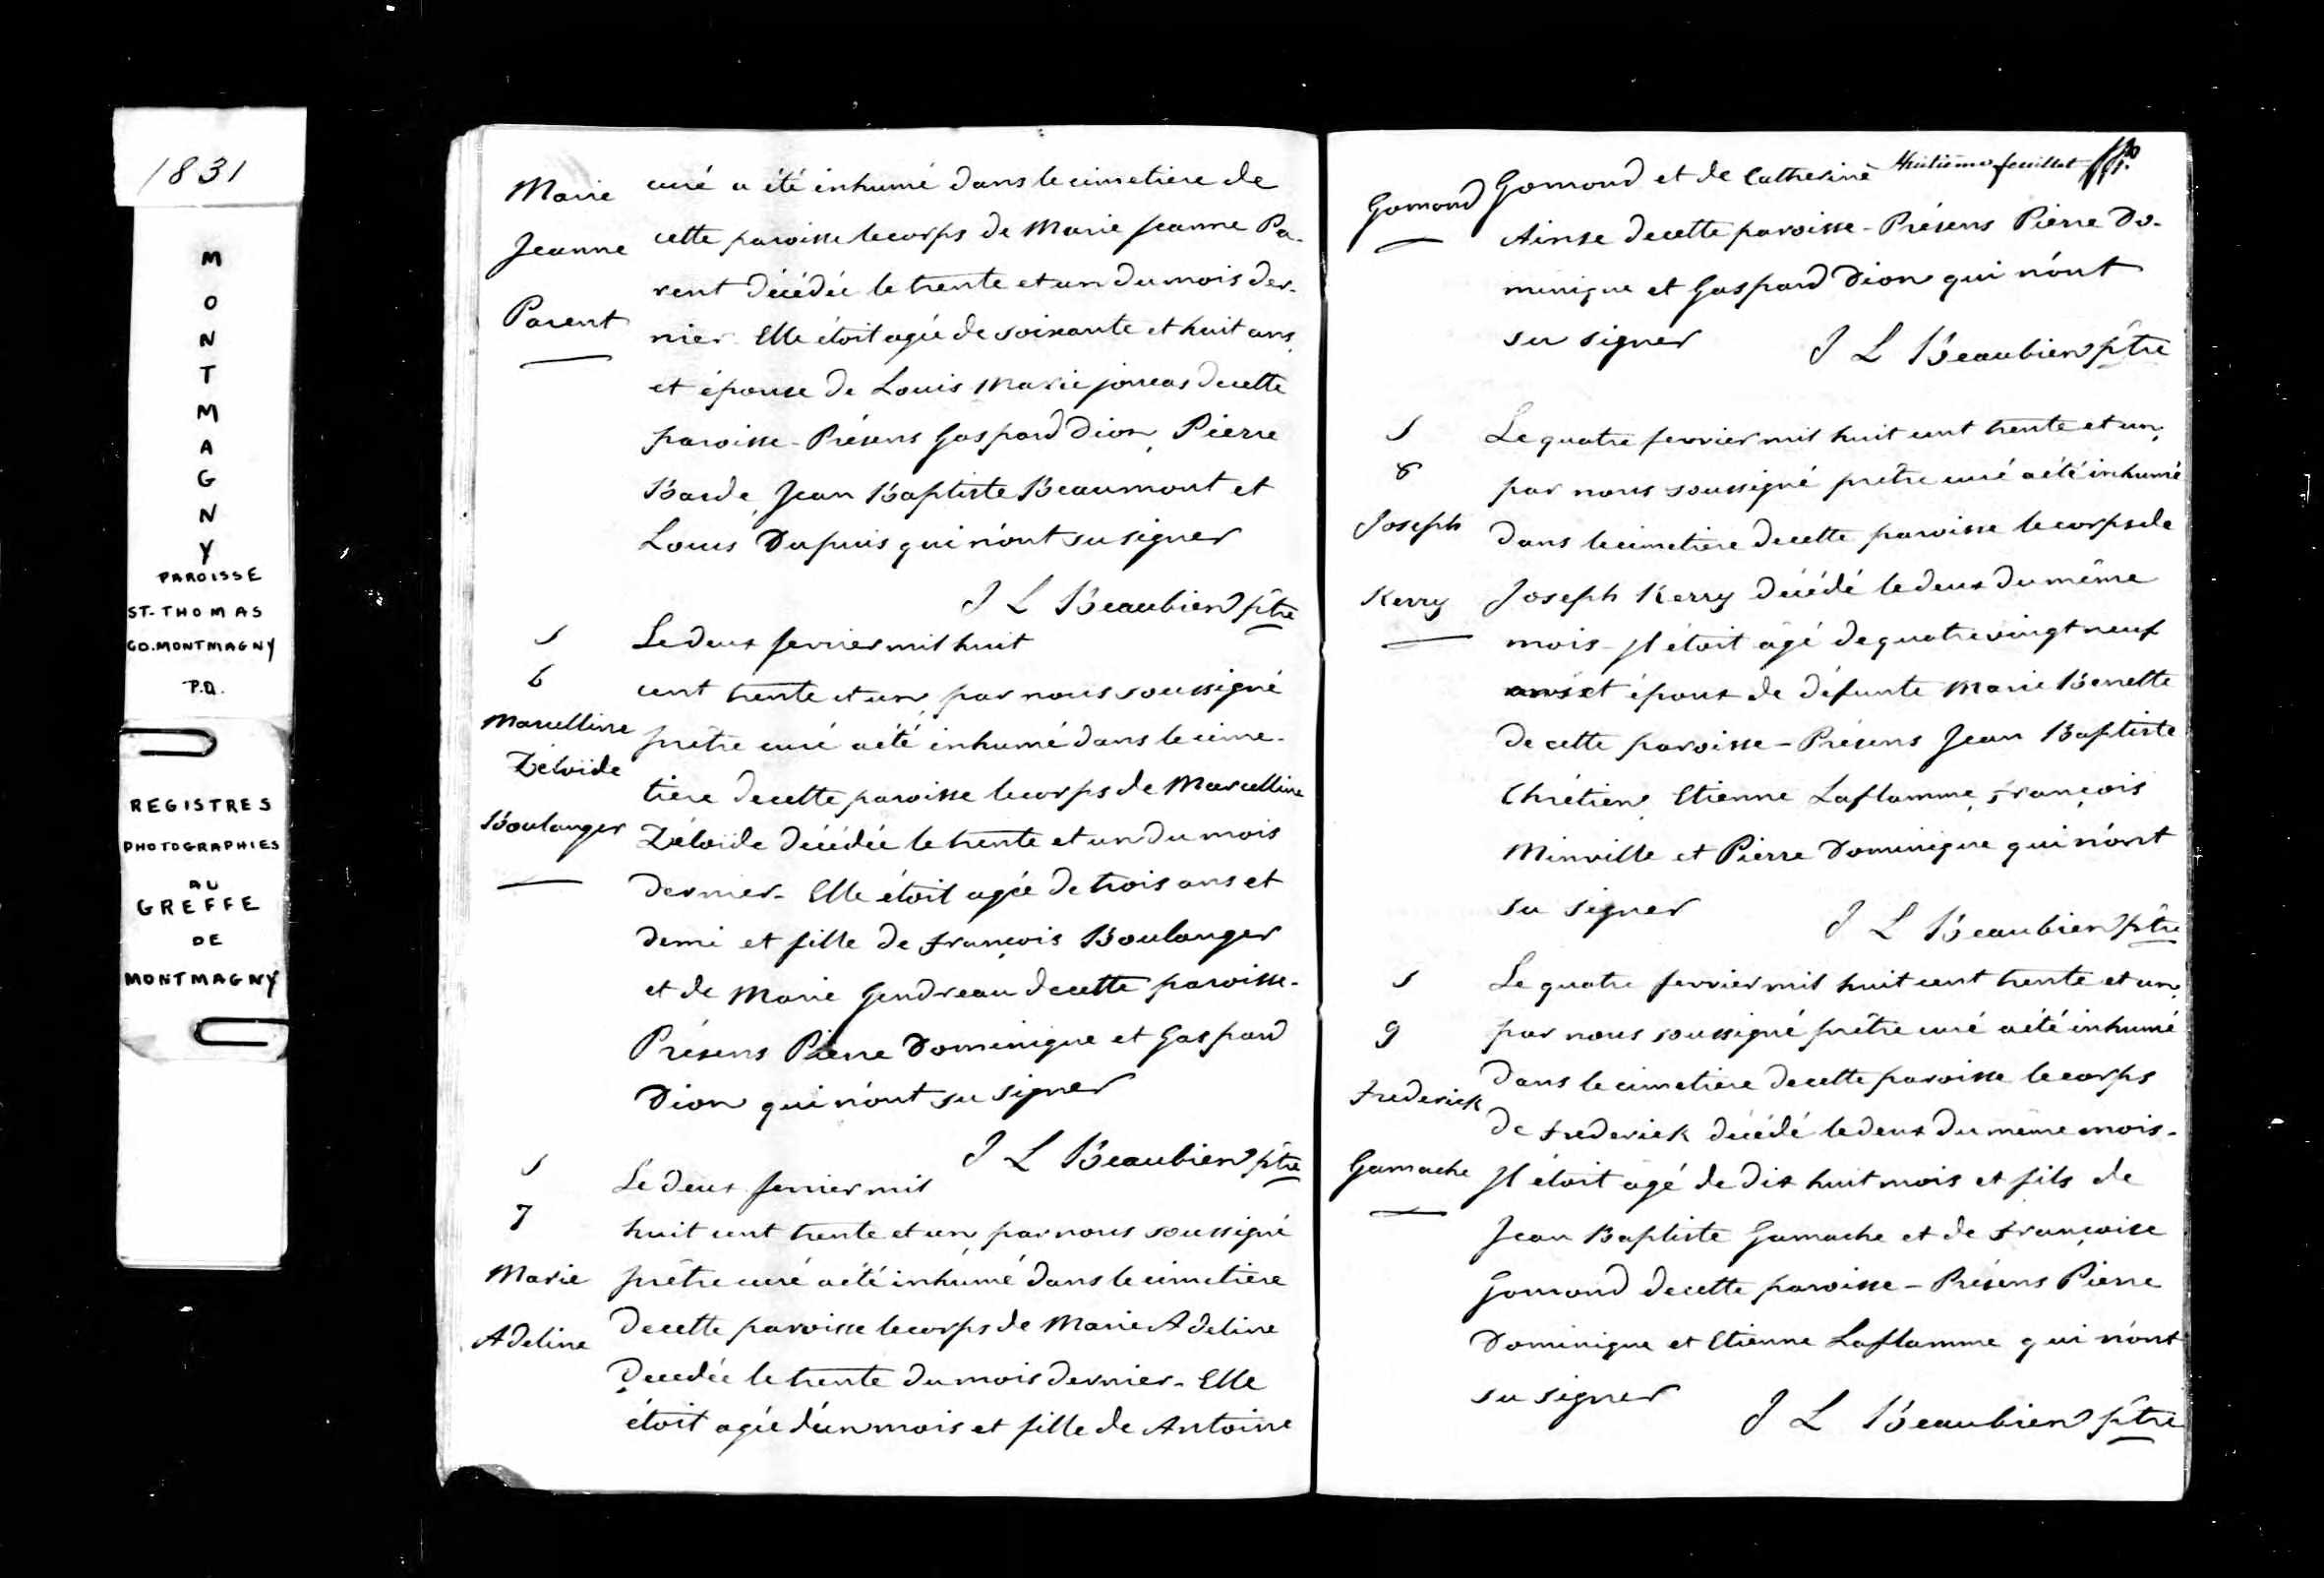 1831
MONTMAGNY
PAROISSE
ST-THOMAS
CO.MONTMAGNY
P.Q.
REGISTRES
PHOTOGRAPHIES
AU
GREFFE
DE
MONTMAGNY
Marie
Jeanne
Parent
curé a été inhumé dans le cimetiere de
cette paroisse le corps de Marie Jeanne Pa-
rent décédée le trente et un du mois der-
nier. Elle étoit agée de soixante et huit ans,
et épouse de Louis Marie joncas de cette
paroisse - Présens Gaspard Dion, Pierre
Barde, Jean Baptiste Beaumont et
Louis Dupuis qui n'ont su signer
J L Beaubien ptre
S
6
Marcelline
Zéloïde
Boulanger
Le deux fevrier mil huit
cent trente et un, par nous soussigné
prêtre curé a été inhumé dans le cime-
tiere de cette paroisse le corps de Marcelline
Zéloïde décédée le trente et un du mois
dernier - Elle étoit agée de trois ans et
demi et fille de François Boulanger
et de Marie Gendreau de cette paroisse -
Présens Pierre Dominique et Gaspard
Dion qui n'ont su signer
J L Beaubien ptre
S
7
Marie
Adeline
Le deux fevrier mil
huit cent trente et un, par nous soussigné
prêtre curé a été inhumé dans le cimetiere
de cette paroisse le corps de Marie Adeline
Décédée le trente du mois dernier - Elle
étoit agée d'un mois et fille de Antoine
Huitième feuillet
Gomond
Gomond et de Catherine
Ainse de cette paroisse - Présens Pierre Do-
minique et Gaspard Dion qui n'ont
su signer
J L Beaubien ptre
S
8
Joseph
Kerry
Le quatre fevrier mil huit cent trente et un,
par nous soussigné prêtre curé a été inhumé
dans le cimetiere de cette paroisse le corps de
Joseph Kerry décédé le deux du même
mois - Il étoit âgé de quatre vingt neuf
ans et époux de défunte Marie Benette
de cette paroisse - Présens Jean Baptiste
Chrétien, Etienne Laflamme, François
Minville et Pierre Dominique qui n'ont
su signer
J L Beaubien ptre
S
9
Frederick
Gamache
Le quatre fevrier mil huit cent trente et un,
par nous soussigné prêtre curé a été inhumé
dans le cimetiere de cette paroisse le corps
de Frederick décédé le deux du même mois -
Il étoit agé de dix huit mois et fils de
Jean Baptiste Gamache et de Françoise
Gomond de cette paroisse - Présens Pierre
Dominique et Etienne Laflamme qui n'ont
su signer
J L Beaubien ptre